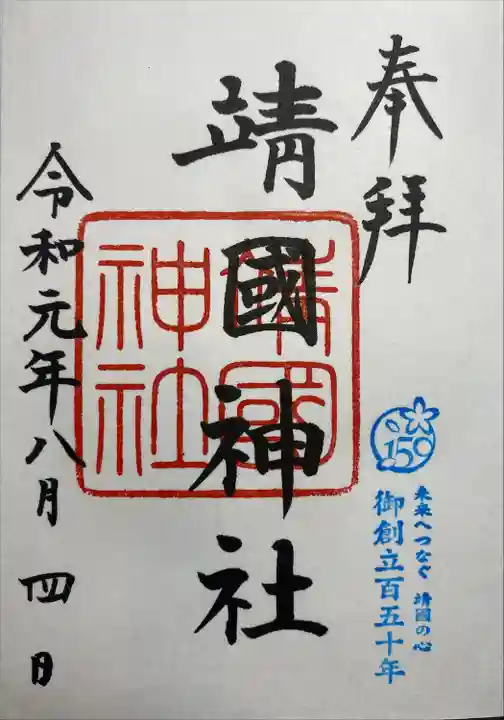 奉拝
靖國神社
靖國
神社
150
未来へつなぐ 靖國の心
御創立百五十年
令和元年八月四日